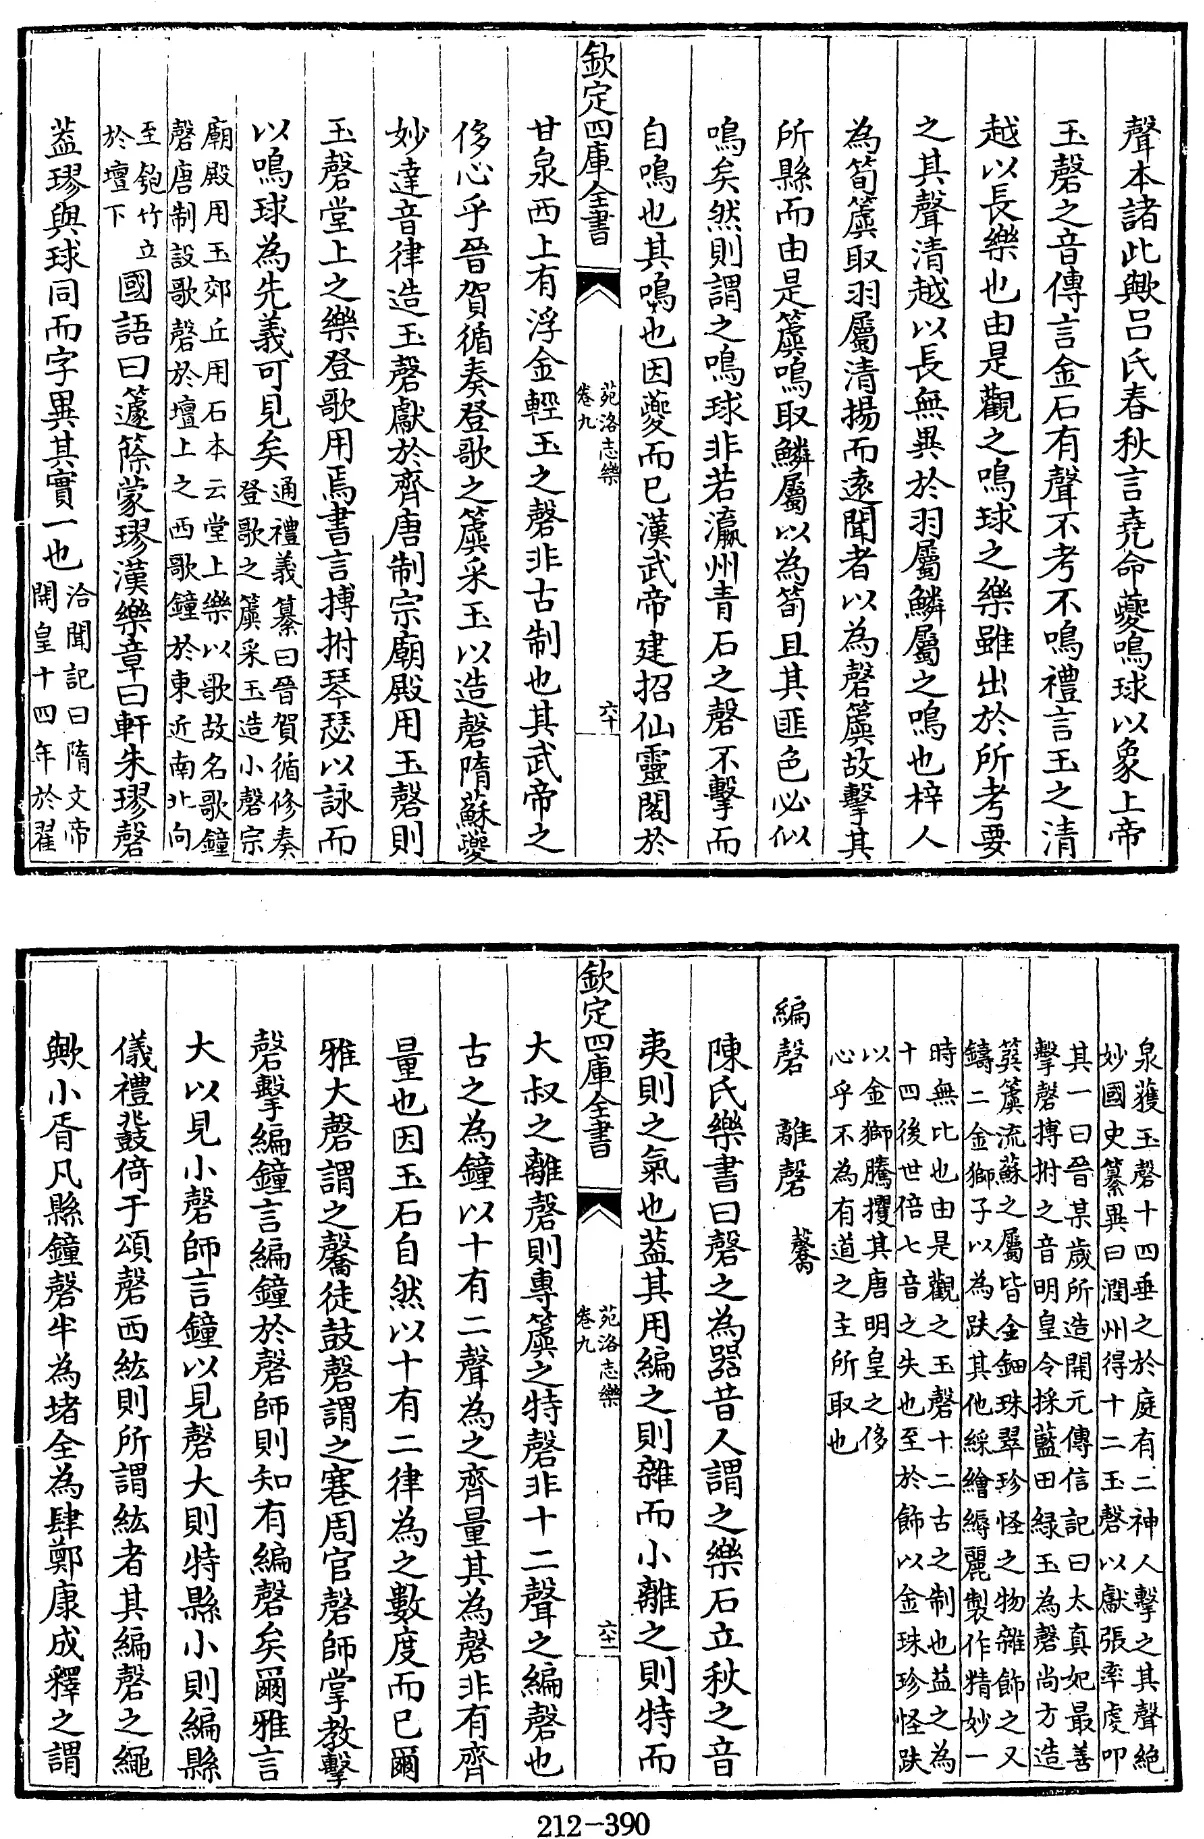 聲本諸此歟吕氏春秋言堯命夔鳴球以象上帝
玉磬之音傳言金石有聲不考不鳴禮言玉之清
越以長樂也由是觀之鳴球之樂雖出於所考要
之其聲清越以長無異於羽屬鱗屬之鳴也梓人
為筍簴取羽屬清揚而遠聞者以為磬簴故擊其
所縣而由是簴鳴取鱗屬以為筍且其匪色必似
鳴矣然則謂之鳴球非若瀛州青石之磬不擊而
自鳴也其鳴也因夔而已漢武帝建招仙靈閣於
欽定四庫全書
苑洛志樂
卷九
六十
甘泉西上有浮金輕玉之磬非古制也其武帝之
侈心乎晉賀循奏登歌之簴采玉以造磬隋蘇夔
妙達音律造玉磬獻於齊唐制宗廟殿用玉磬則
玉磬堂上之樂登歌用焉書言搏拊琴瑟以詠而
以鳴球為先義可見矣
通禮義纂曰晉賀循修奏
登歌之簴采玉造小磬宗
廟殿用玉郊丘用石本云堂上樂以歌故名歌鐘
磬唐制設歌磬於壇上之西歌鐘於東近南北向
至匏竹立
於壇下
國語曰籧篨蒙璆漢樂章曰軒朱璆磬
葢璆與球同而字異其實一也
洽聞記曰隋文帝
開皇十四年於翟
泉獲玉磬十四垂之於庭有二神人擊之其聲絶
妙國史纂異曰潤州得十二玉磬以獻張率虔叩
其一曰晉某歲所造開元傳信記曰太真妃最善
擊磬搏拊之音明皇令採藍田緑玉為磬尚方造
簨簴流蘇之屬皆金鈿珠翠珍怪之物雜飾之又
鑄二金獅子以為趺其他綵繪縟麗製作精妙一
時無比也由是觀之玉磬十二古之制也益之為
十四後世倍七音之失也至於飾以金珠珍怪趺
以金獅騰攫其唐明皇之侈
心乎不為有道之主所取也
編磬 離磬 毊
陳氏樂書曰磬之為器昔人謂之樂石立秋之音
夷則之氣也葢其用編之則雜而小離之則特而
欽定四庫全書
苑洛志樂
卷九
六十一
大叔之離磬則專簴之特磬非十二聲之編磬也
古之為鐘以十有二聲為之齊量其為磬非有齊
量也因玉石自然以十有二律為之數度而已爾
雅大磬謂之毊徒鼓磬謂之寋周官磬師掌教擊
磬擊編鐘言編鐘於磬師則知有編磬矣爾雅言
大以見小磬師言鐘以見磬大則特縣小則編縣
儀禮鼗倚于頌磬西紘則所謂紘者其編磬之繩
歟小胥凡縣鐘磬半為堵全為肆鄭康成釋之謂
212-390